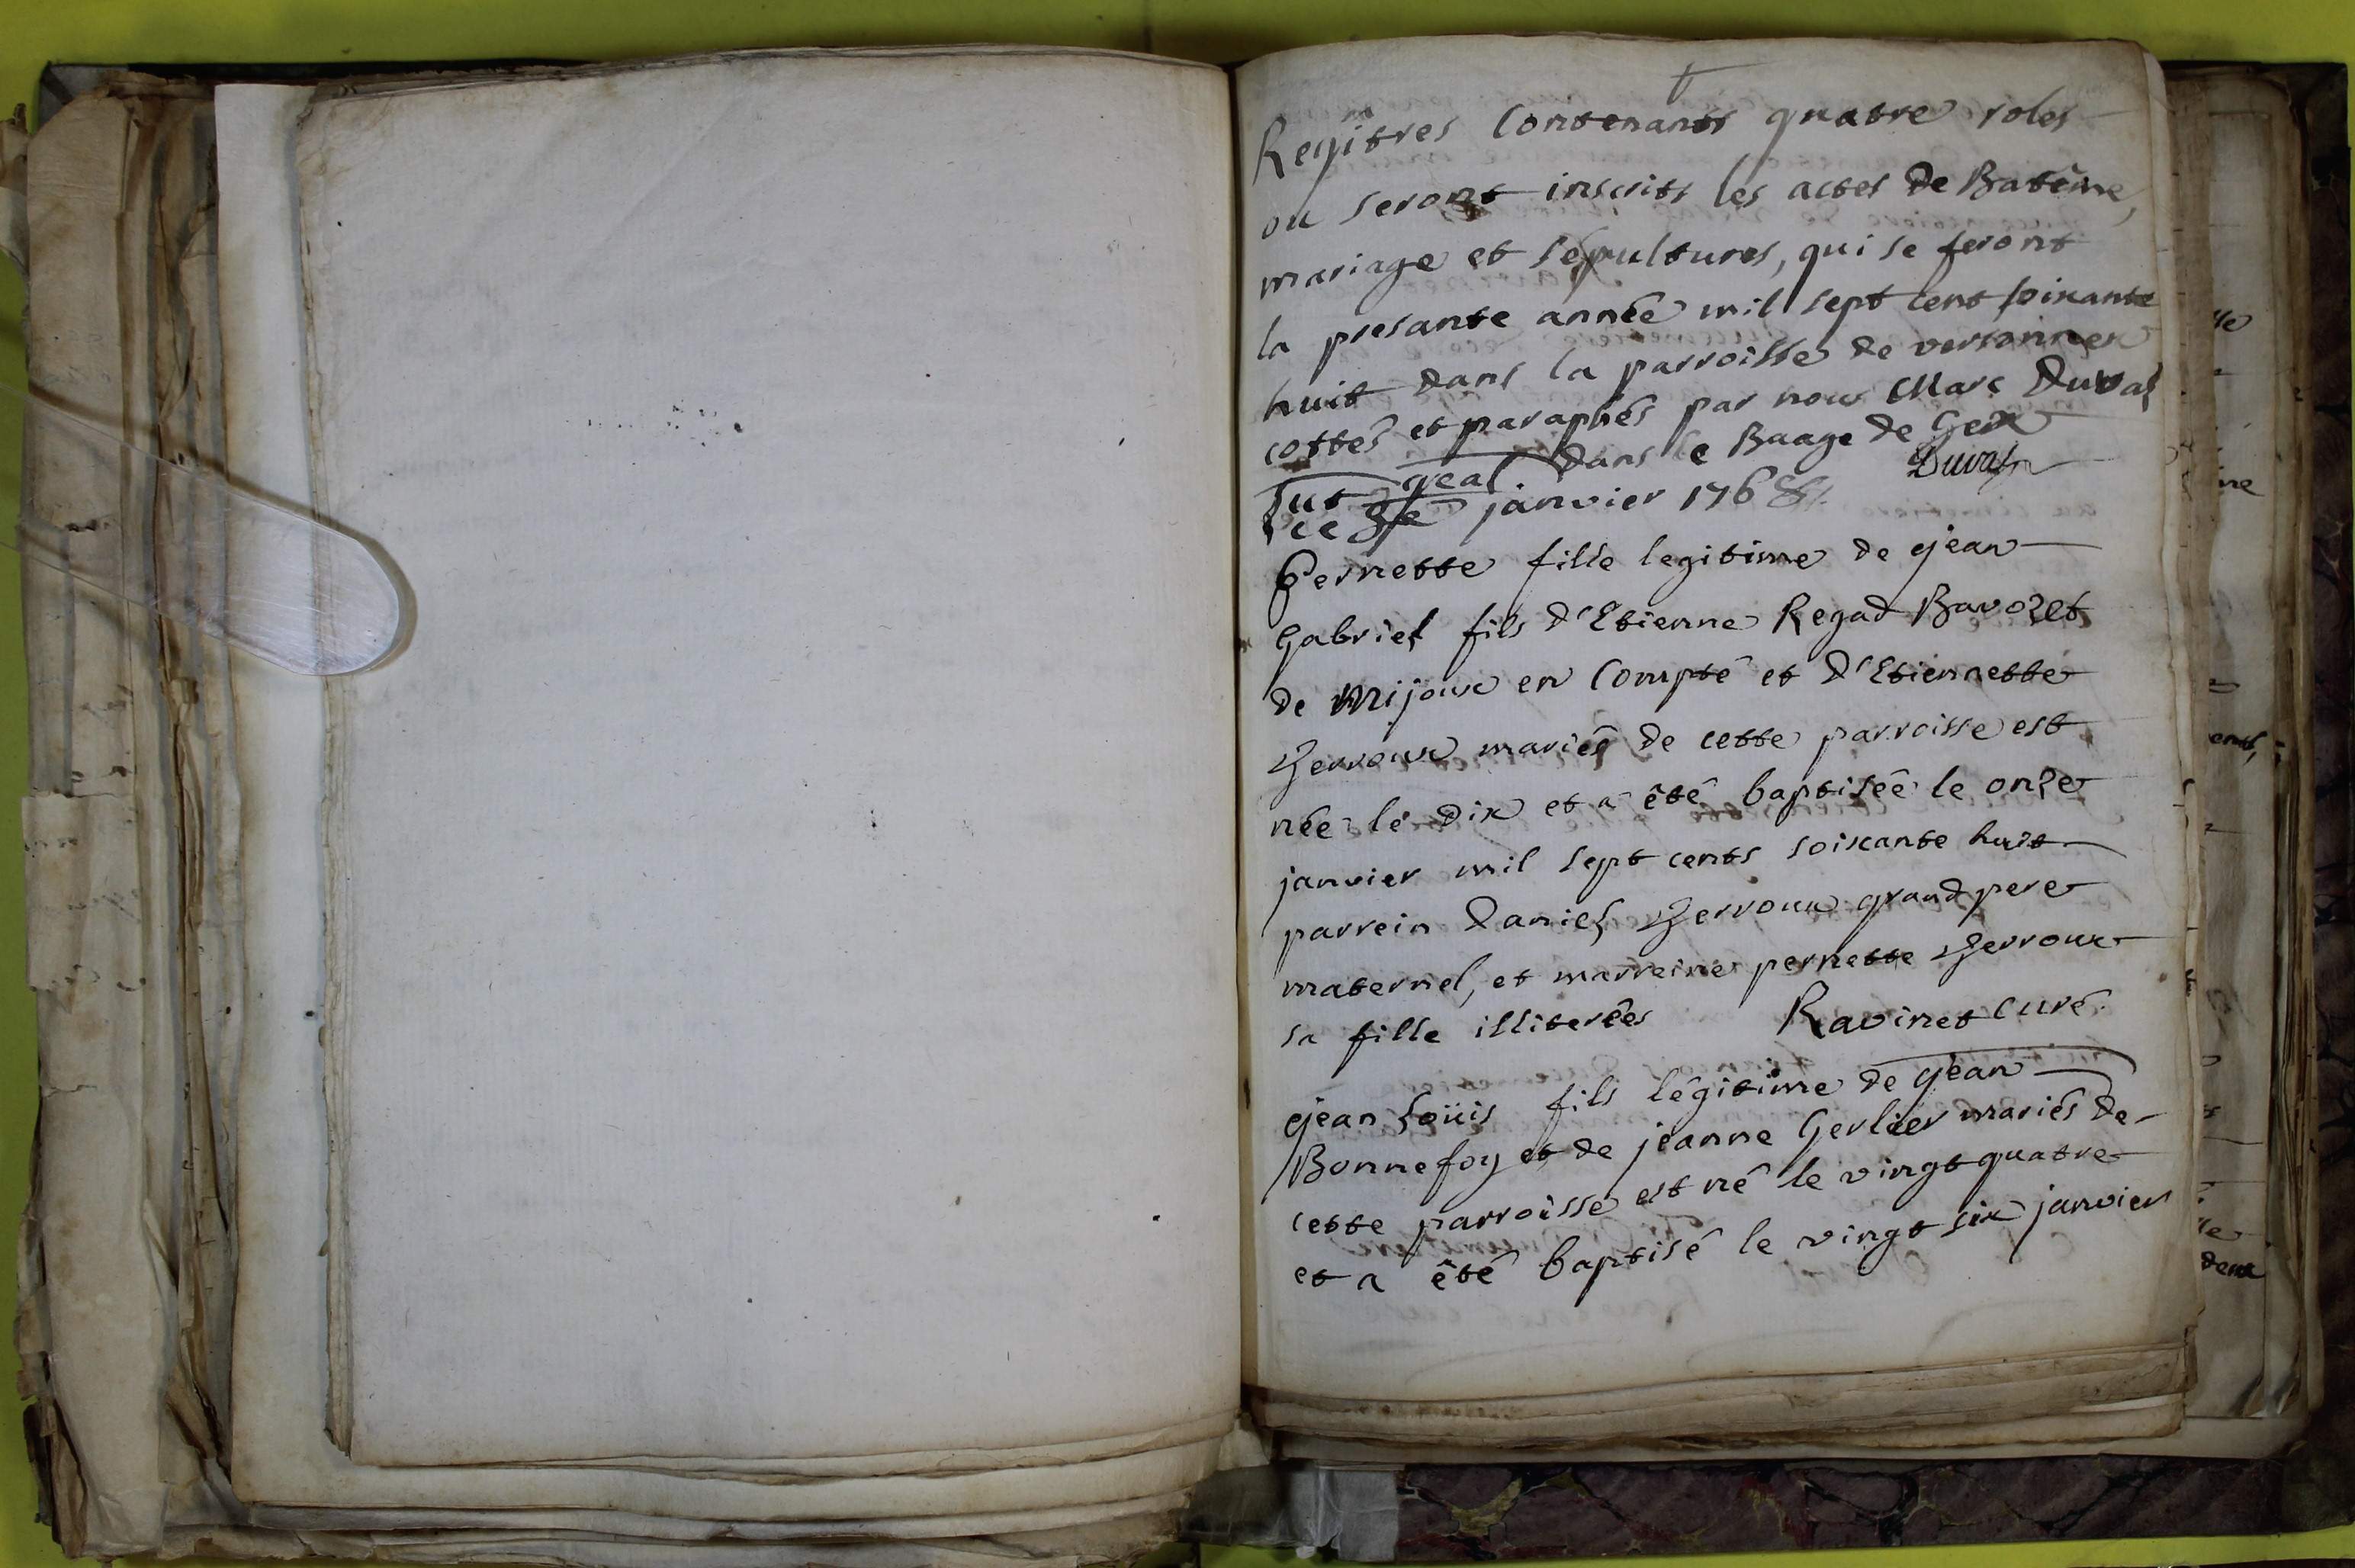 Regitres Contenants quatre roles
ou seront inscrits les actes de Batême,
mariage et sépultures, qui se feront
la presante année mil sept cent soixante
huit dans la parroisse de versonnex
cottés et paraphés par nous Marc Duval
Lut gêal dans le Baage de Gex
ce 3e janvier 1768. Duval
Pernette fille legitime de jean
Gabriel fils d'Etienne Regad Bavozet
de Mijoux en Compté et d'Etiennette
Verroux mariés de cette parroisse est
née le dix et a été baptisée le onze
janvier mil sept cents soixante huit
parrein Daniel Verroux grand pere
maternel, et marreine pernette Verroux
sa fille illiterées Ravinet Curé.
jean Loüis fils légitime de jean
Bonnefoy et de jeanne Gerlier mariés de
cette parroisse est né le vingt quatre
et a été baptisé le vingt six janvier
lle
ine
deux